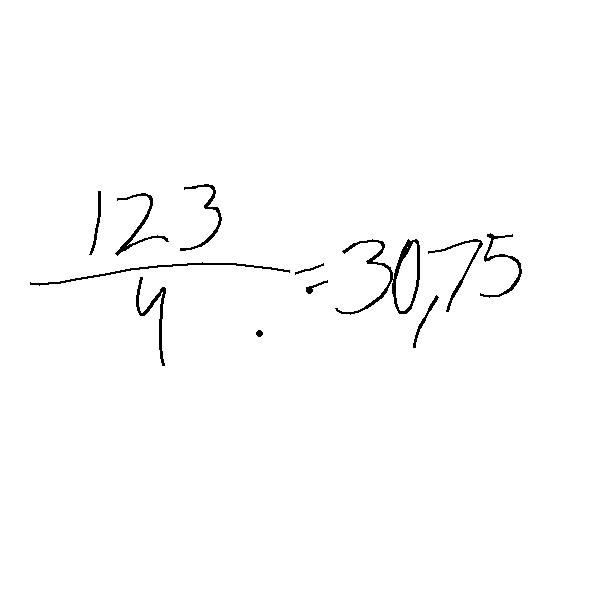 123
4 = 30,75